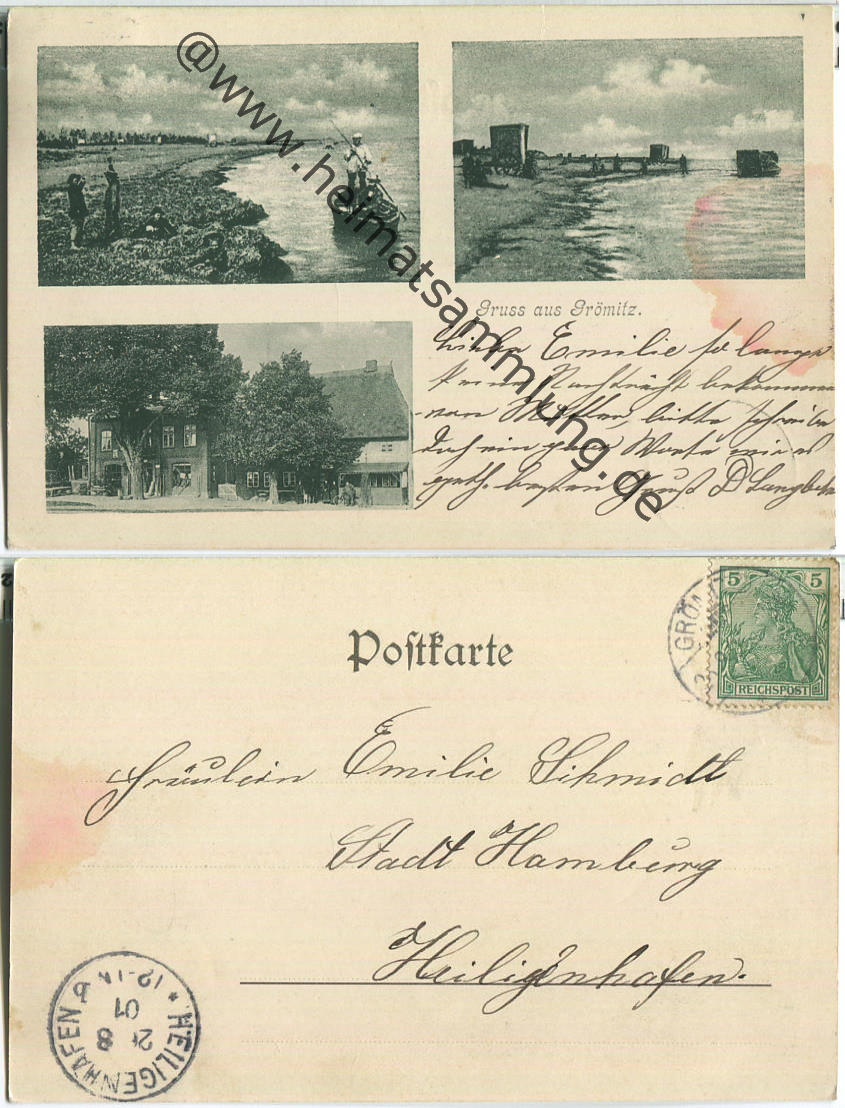 @www.heimatsammlung.de
Gruss aus Grömitz.
Liebe Emilie so lange
Nachricht bekommen
von
ein paar Worte wie es
geht. besten Gruß D Langbe
Postkarte
5 5
REICHSPOST
GRÖ
Fräulein Emilie Schmidt
Stadt Hamburg
Heiligenhafen.
* HEILIGENHAFEN
8
01
12-1N